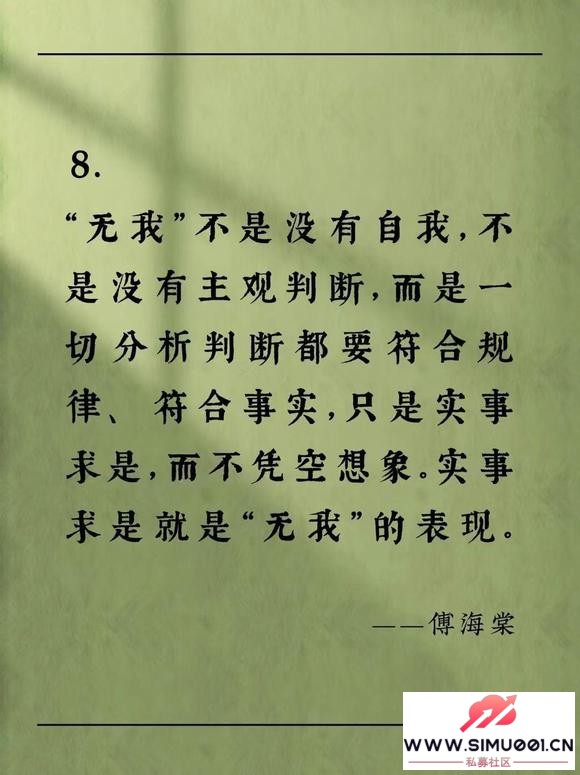 8.
“无我”不是没有自我,不
是没有主观判断,而是一
切分析判断都要符合规
律、符合事实,只是实事
求是,而不凭空想象。实事
求是就是“无我”的表现。
——傅海棠
WWW.SIMU001.CN
私募社区